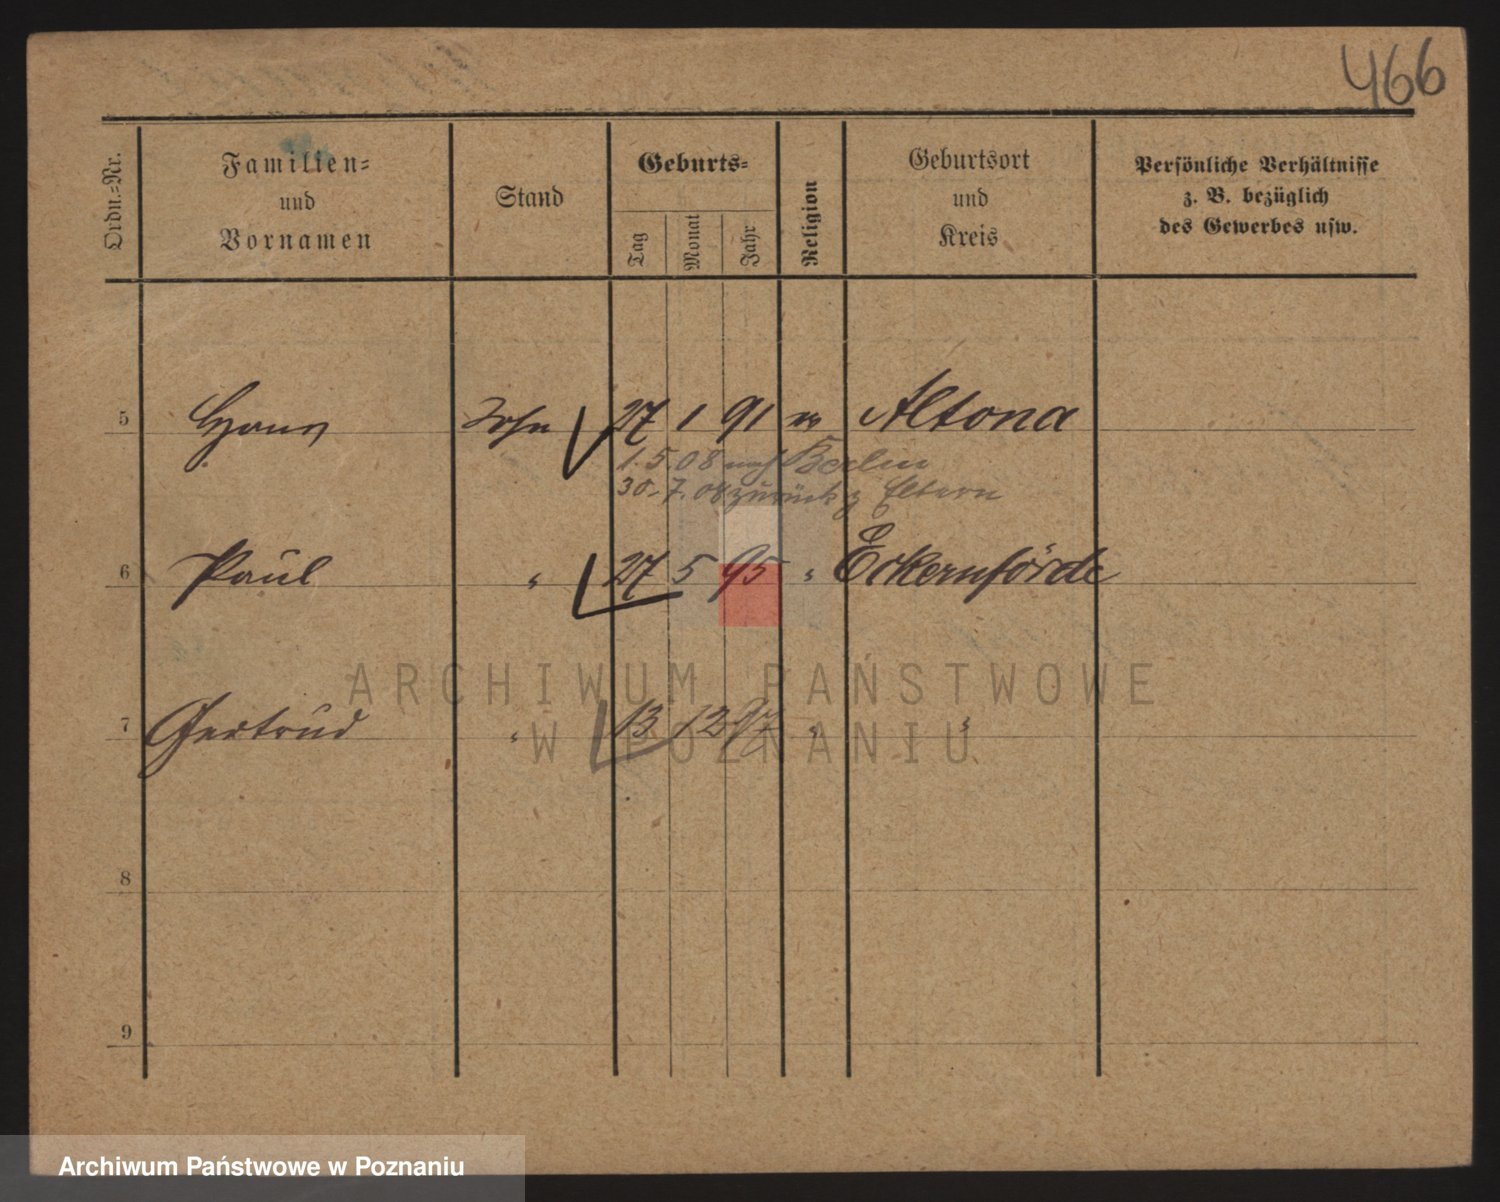 466
Ordn.=Nr.
Familien=
und
Vornamen
Stand
Geburts=
Tag
Monat
Jahr
Religion
Geburtsort
und
Kreis
Persönliche Verhältnisse
z. B. bezüglich
des Gewerbes usw.
5 Hans Sohn 27 1 91 Altona
1.5.08 nach Berlin
30.7.08 zurück z Eltern
6 Paul " 27 5 95 " Eckernförde
7 Gertrud " 13 12 97 " "
8
9
ARCHIWUM PAŃSTWOWE
W POZNANIU
Archiwum Państwowe w Poznaniu